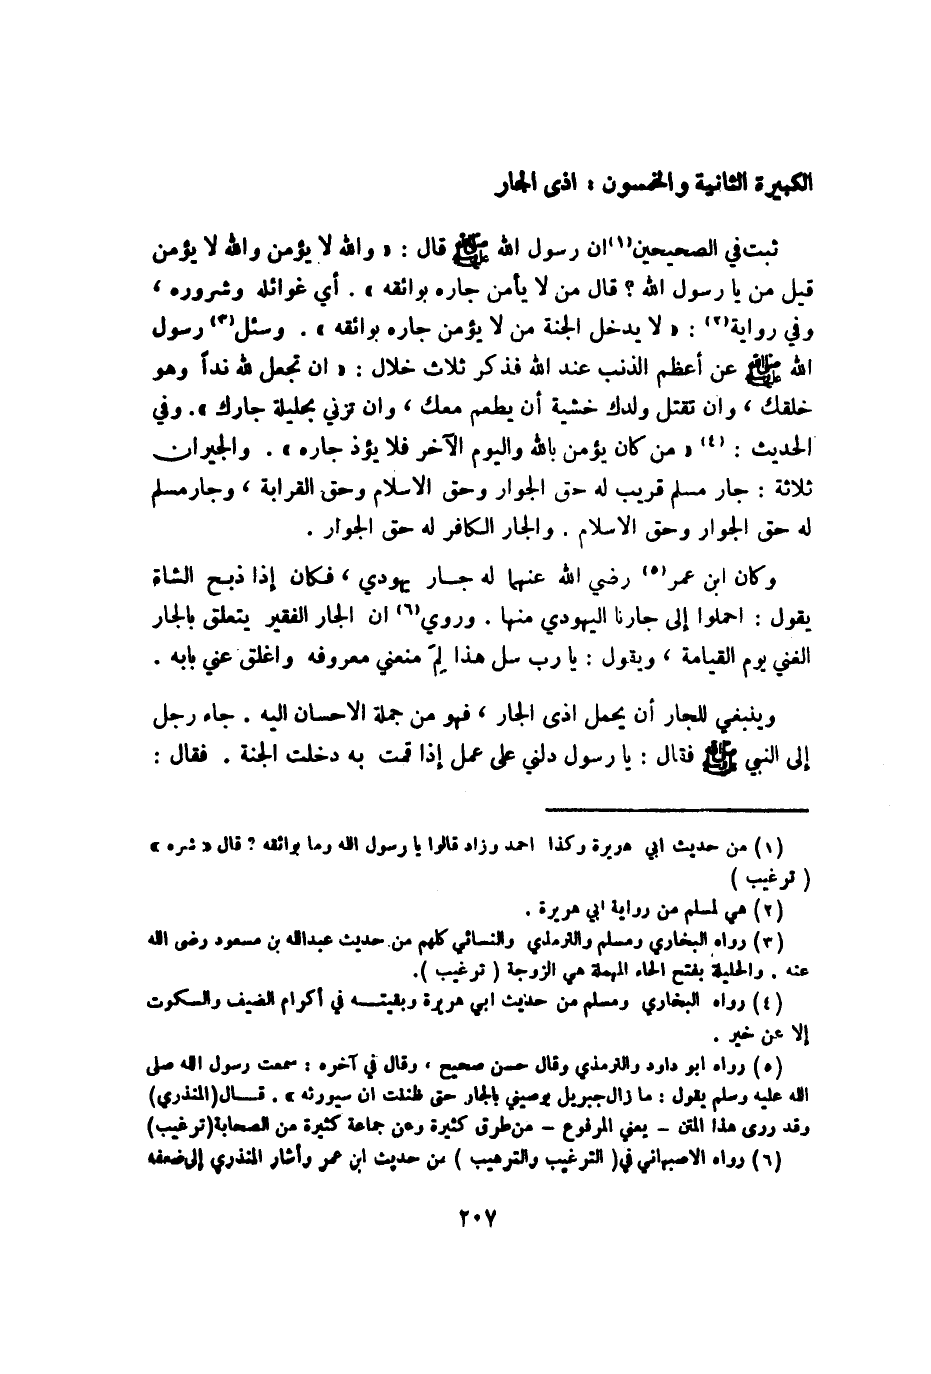 الكبيرة الثانية والخمسون : اذى الجار
ثبت في الصحيحين (١) ان رسول الله ﷺ قال : « والله لا يؤمن والله لا يؤمن
قيل من يا رسول الله ؟ قال من لا يأمن جاره بوائقه » . أي غوائله وشروره ،
وفي رواية (٢) : « لا يدخل الجنة من لا يؤمن جاره بوائقه » . وسئل (٣) رسول
الله ﷺ عن أعظم الذنب عند الله فذكر ثلاث خلال : « ان تجعل لله نداً وهو
خلقك ، وان تقتل ولدك خشية أن يطعم معك ، وان تزني بحليلة جارك » . وفي
الحديث : (٤) « من كان يؤمن بالله واليوم الآخر فلا يؤذ جاره » . والجيران
ثلاثة : جار مسلم قريب له حق الجوار وحق الاسلام وحق القرابة ، وجار مسلم
له حق الجوار وحق الاسلام . والجار الكافر له حق الجوار .
وكان ابن عمر (٥) رضي الله عنهما له جار يهودي ، فكان إذا ذبح الشاة
يقول : احملوا إلى جارنا اليهودي منها . وروي (٦) ان الجار الفقير يتعلق بالجار
الغني يوم القيامة ، ويقول : يا رب سل هذا لِمَ منعني معروفه واغلق عني بابه .
وينبغي للجار أن يحمل اذى الجار ، فهو من جملة الاحسان اليه . جاء رجل
إلى النبي ﷺ فقال : يا رسول دلني على عمل إذا قمت به دخلت الجنة . فقال :
(١) من حديث ابي هريرة وكذا احمد وزاد قالوا يا رسول الله وما بوائقه ؟ قال « شره »
( ترغيب )
(٢) هي لمسلم من رواية ابي هريرة .
(٣) رواه البخاري ومسلم والترمذي والنسائي كلهم من حديث عبدالله بن مسعود رضى الله
عنه . والحليلة بفتح الحاء المهملة هي الزوجة ( ترغيب ).
(٤) رواه البخاري ومسلم من حديث ابي هريرة وبقيته في أكرام الضيف والسكوت
إلا عن خير .
(٥) رواه ابو داود والترمذي وقال حسن صحيح ، وقال في آخره : سمعت رسول الله صلى
الله عليه وسلم يقول : ما زال جبريل يوصيني بالجار حتى ظننت ان سيورثه » . قال (المنذري)
وقد روى هذا المتن - يعني المرفوع - من طرق كثيرة وعن جماعة كثيرة من الصحابة (ترغيب)
(٦) رواه الاصبهاني في ( الترغيب والترهيب ) من حديث ابن عمر وأشار المنذري إلى ضعفه
٢٠٧